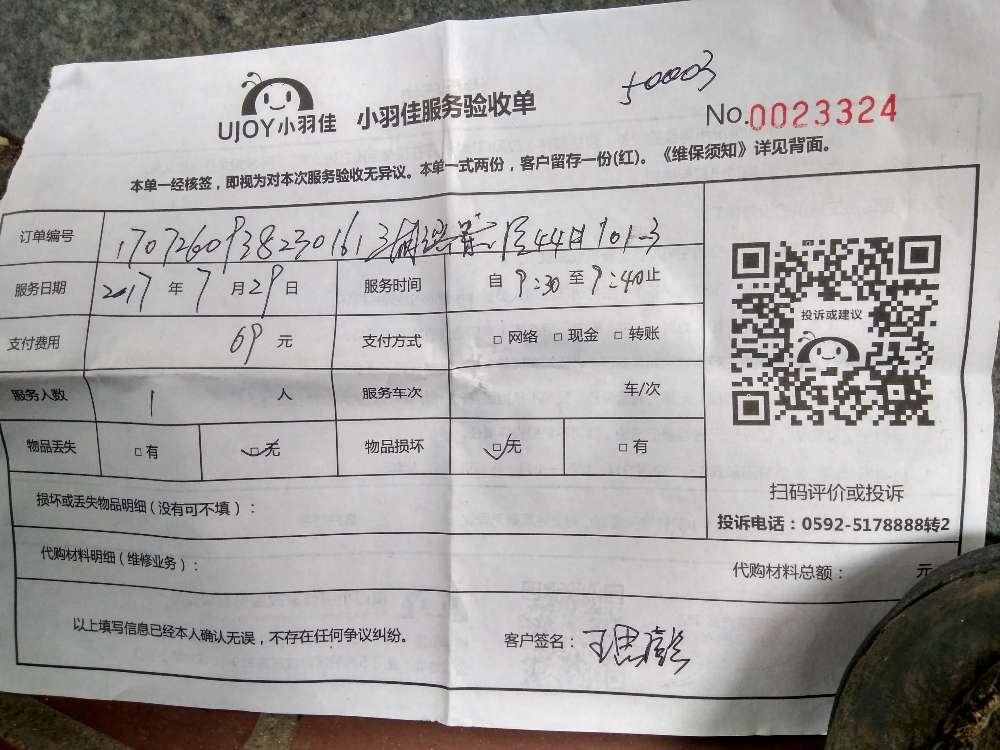 50003
UJOY小羽佳 小羽佳服务验收单
No.0023324
本单一经核签，即视为对本次服务验收无异议。本单一式两份，客户留存一份(红)。《维保须知》详见背面。
订单编号 17072609382301613 44 101-3
服务日期 2017 年 7 月 29 日 服务时间 自 9:30 至 9:40 止
支付费用 69 元 支付方式 □ 网络 □ 现金 □ 转账
服务人数 1 人 服务车次 车/次
物品丢失 □ 有 □ 无 物品损坏 □ 无 □ 有
投诉或建议
扫码评价或投诉
投诉电话：0592-5178888转2
损坏或丢失物品明细（没有可不填）：
代购材料明细（维修业务）： 代购材料总额： 元
以上填写信息已经本人确认无误，不存在任何争议纠纷。 客户签名：王思澎